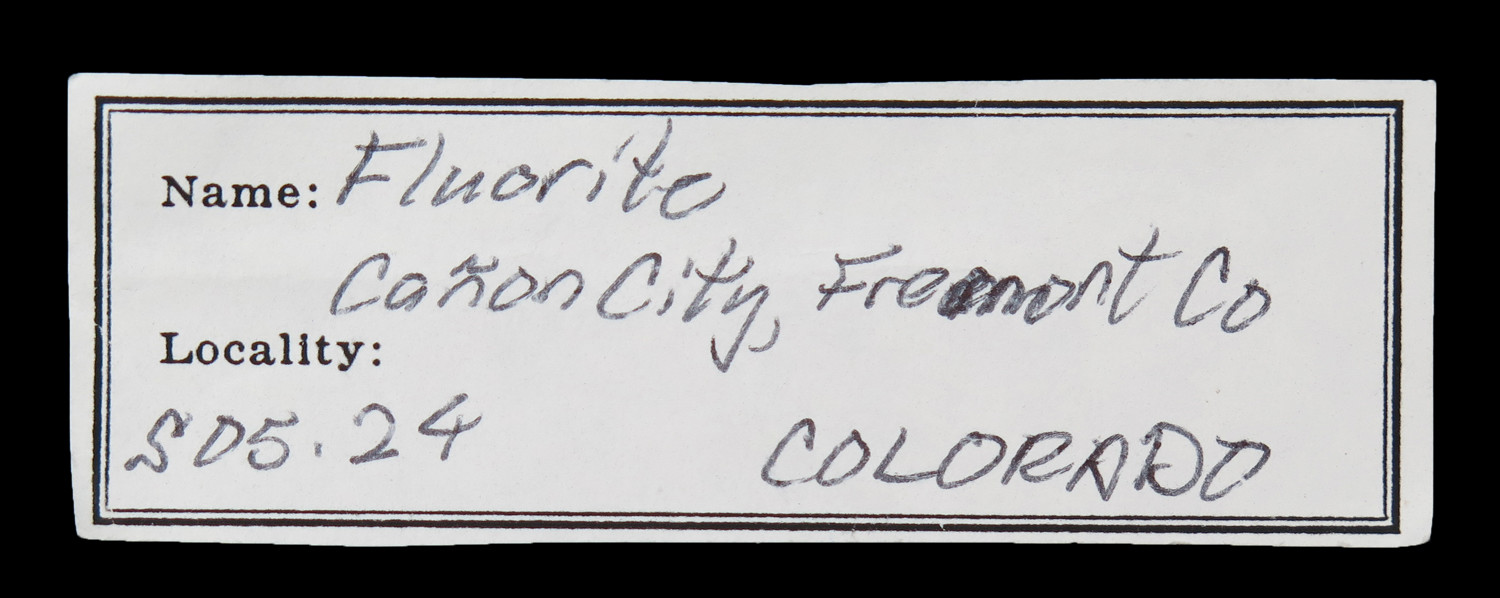 Name: Fluorite
Cañon City, Fremont Co
Locality:
S05.24 COLORADO